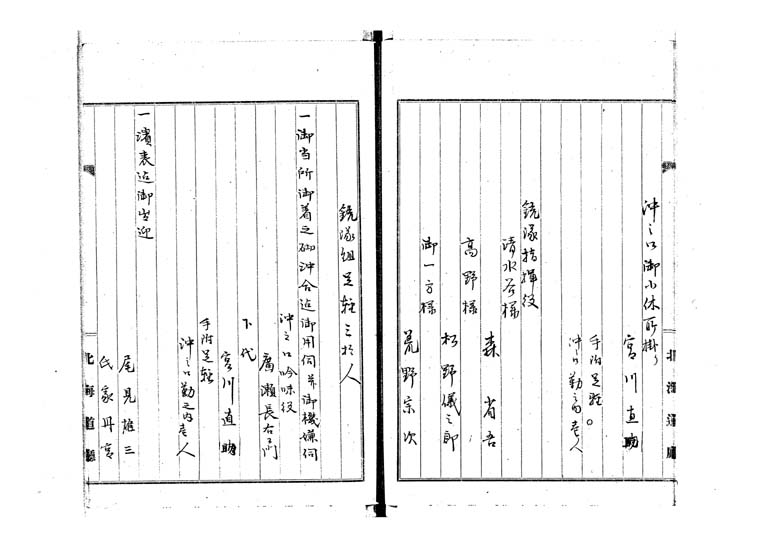 沖之口御小休所掛り
宮川直助
手附足軽
沖之口勤之内壱人
銃隊指揮役
清水谷様
森省吾
高野様
松野儀三郎
御一方様
荒野宗次
北海道庁
銃隊組足軽三拾人
一御当所御着之砌沖合迄御用伺并御機嫌伺
沖之口吟味役
廣瀬長右衛門
下代
宮川直助
手附足軽
沖之口勤之内壱人
一濱表迄御出迎
尾見雄三
氏家丹宮
北海道廳